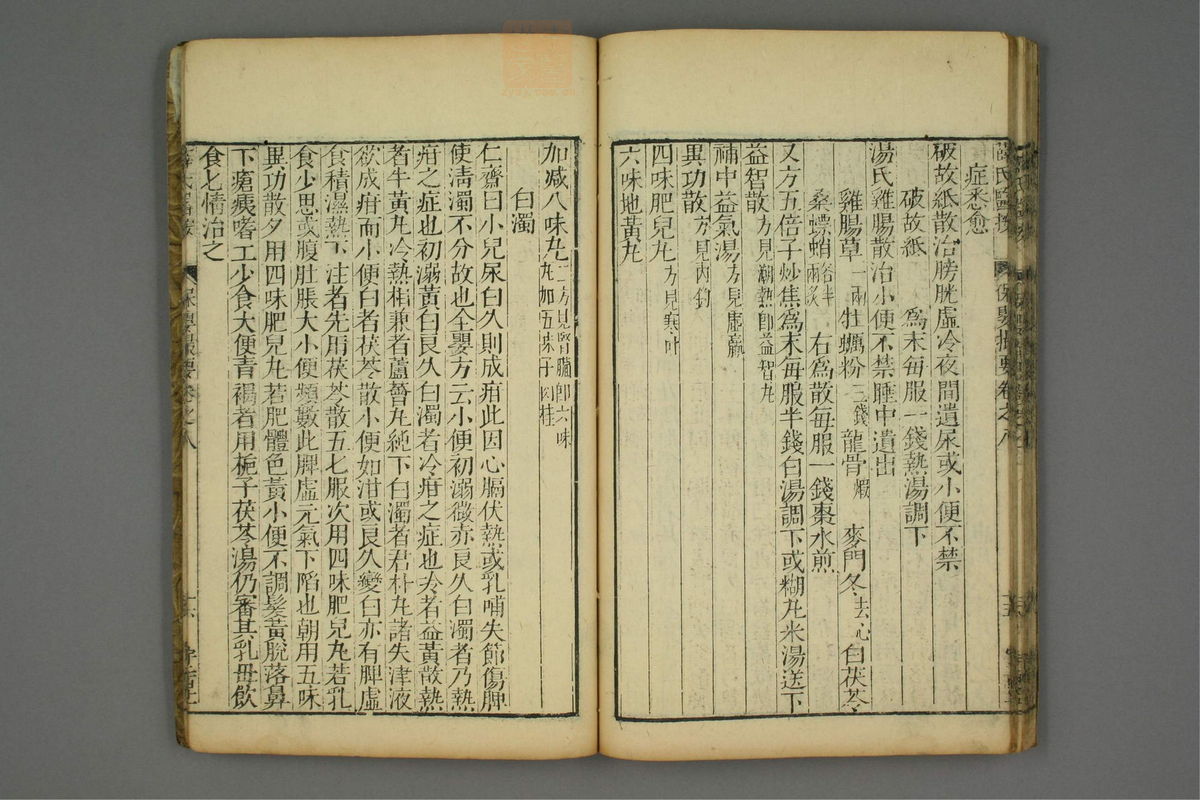 薛氏醫按 保嬰撮要卷之八
症悉愈
破故紙散治膀胱虛冷夜間遺尿或小便不禁
破故紙 爲末每服一錢熱湯調下
湯氏雞腸散治小便不禁睡中遺出
雞腸草一兩 牡蠣粉三錢 龍骨煅 麥門冬去心 白茯苓
桑螵蛸各半兩炙 右爲散每服一錢棗水煎
又方五倍子炒焦爲末每服半錢白湯調下或糊丸米湯送下
益智散方見潮熱即益智丸
補中益氣湯方見虛羸
異功散方見內釣
四味肥兒丸方見寒吐
六味地黃丸
加減八味丸二方見腎臟即六味丸加五味子肉桂
白濁
仁齋曰小兒尿白久則成疳此因心膈伏熱或乳哺失節傷脾
使清濁不分故也全嬰方云小便初溺微赤良久白濁者乃熱
疳之症也初溺黃白良久白濁者冷疳之症也冷者益黃散熱
者牛黃丸冷熱相兼者蘆薈丸純下白濁者君朴丸諸失津液
欲成疳而小便白者茯苓散小便如泔或良久變白亦有脾虛
食積濕熱下注者先用茯苓散五七服次用四味肥兒丸若乳
食少思或腹肚脹大小便頻數此脾虛元氣下陷也朝用五味
異功散夕用四味肥兒丸若肥體色黃小便不調髮黃脫落鼻
下瘡痍嗜土少食大便青褐者用梔子茯苓湯仍審其乳母飲
食七情治之
薛氏醫按 保嬰撮要卷之八